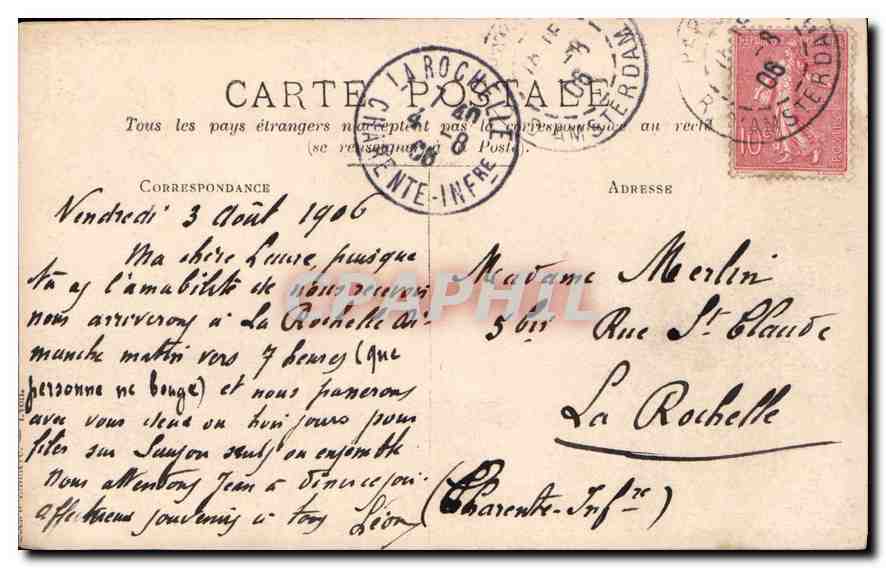 CARTE POSTALE
Tous les pays étrangers n'acceptent pas la correspondance au recto
(se renseigner à la Poste).
CORRESPONDANCE
ADRESSE
LA ROCHELLE
CHARENTE-INFRE
4 - 8
06
R. D'AMSTERDAM
8
06
R. D'AMSTERDAM
8
06
10
Vendredi 3 Août 1906
Ma chère Laure, puisque
tu as l'amabilité de nous recevoir
nous arriverons à La Rochelle di-
manche matin vers 7 heures (que
personne ne bouge) et nous passerons
avec vous deux ou trois jours pour
filer sur Saujon seuls ou ensemble
Nous attendons Jean à dîner ce soir.
affectueux souvenirs à tous Léon
Madame Merlin
5 bis Rue St Claude
La Rochelle
(Charente-Infre)
CPAPHIL